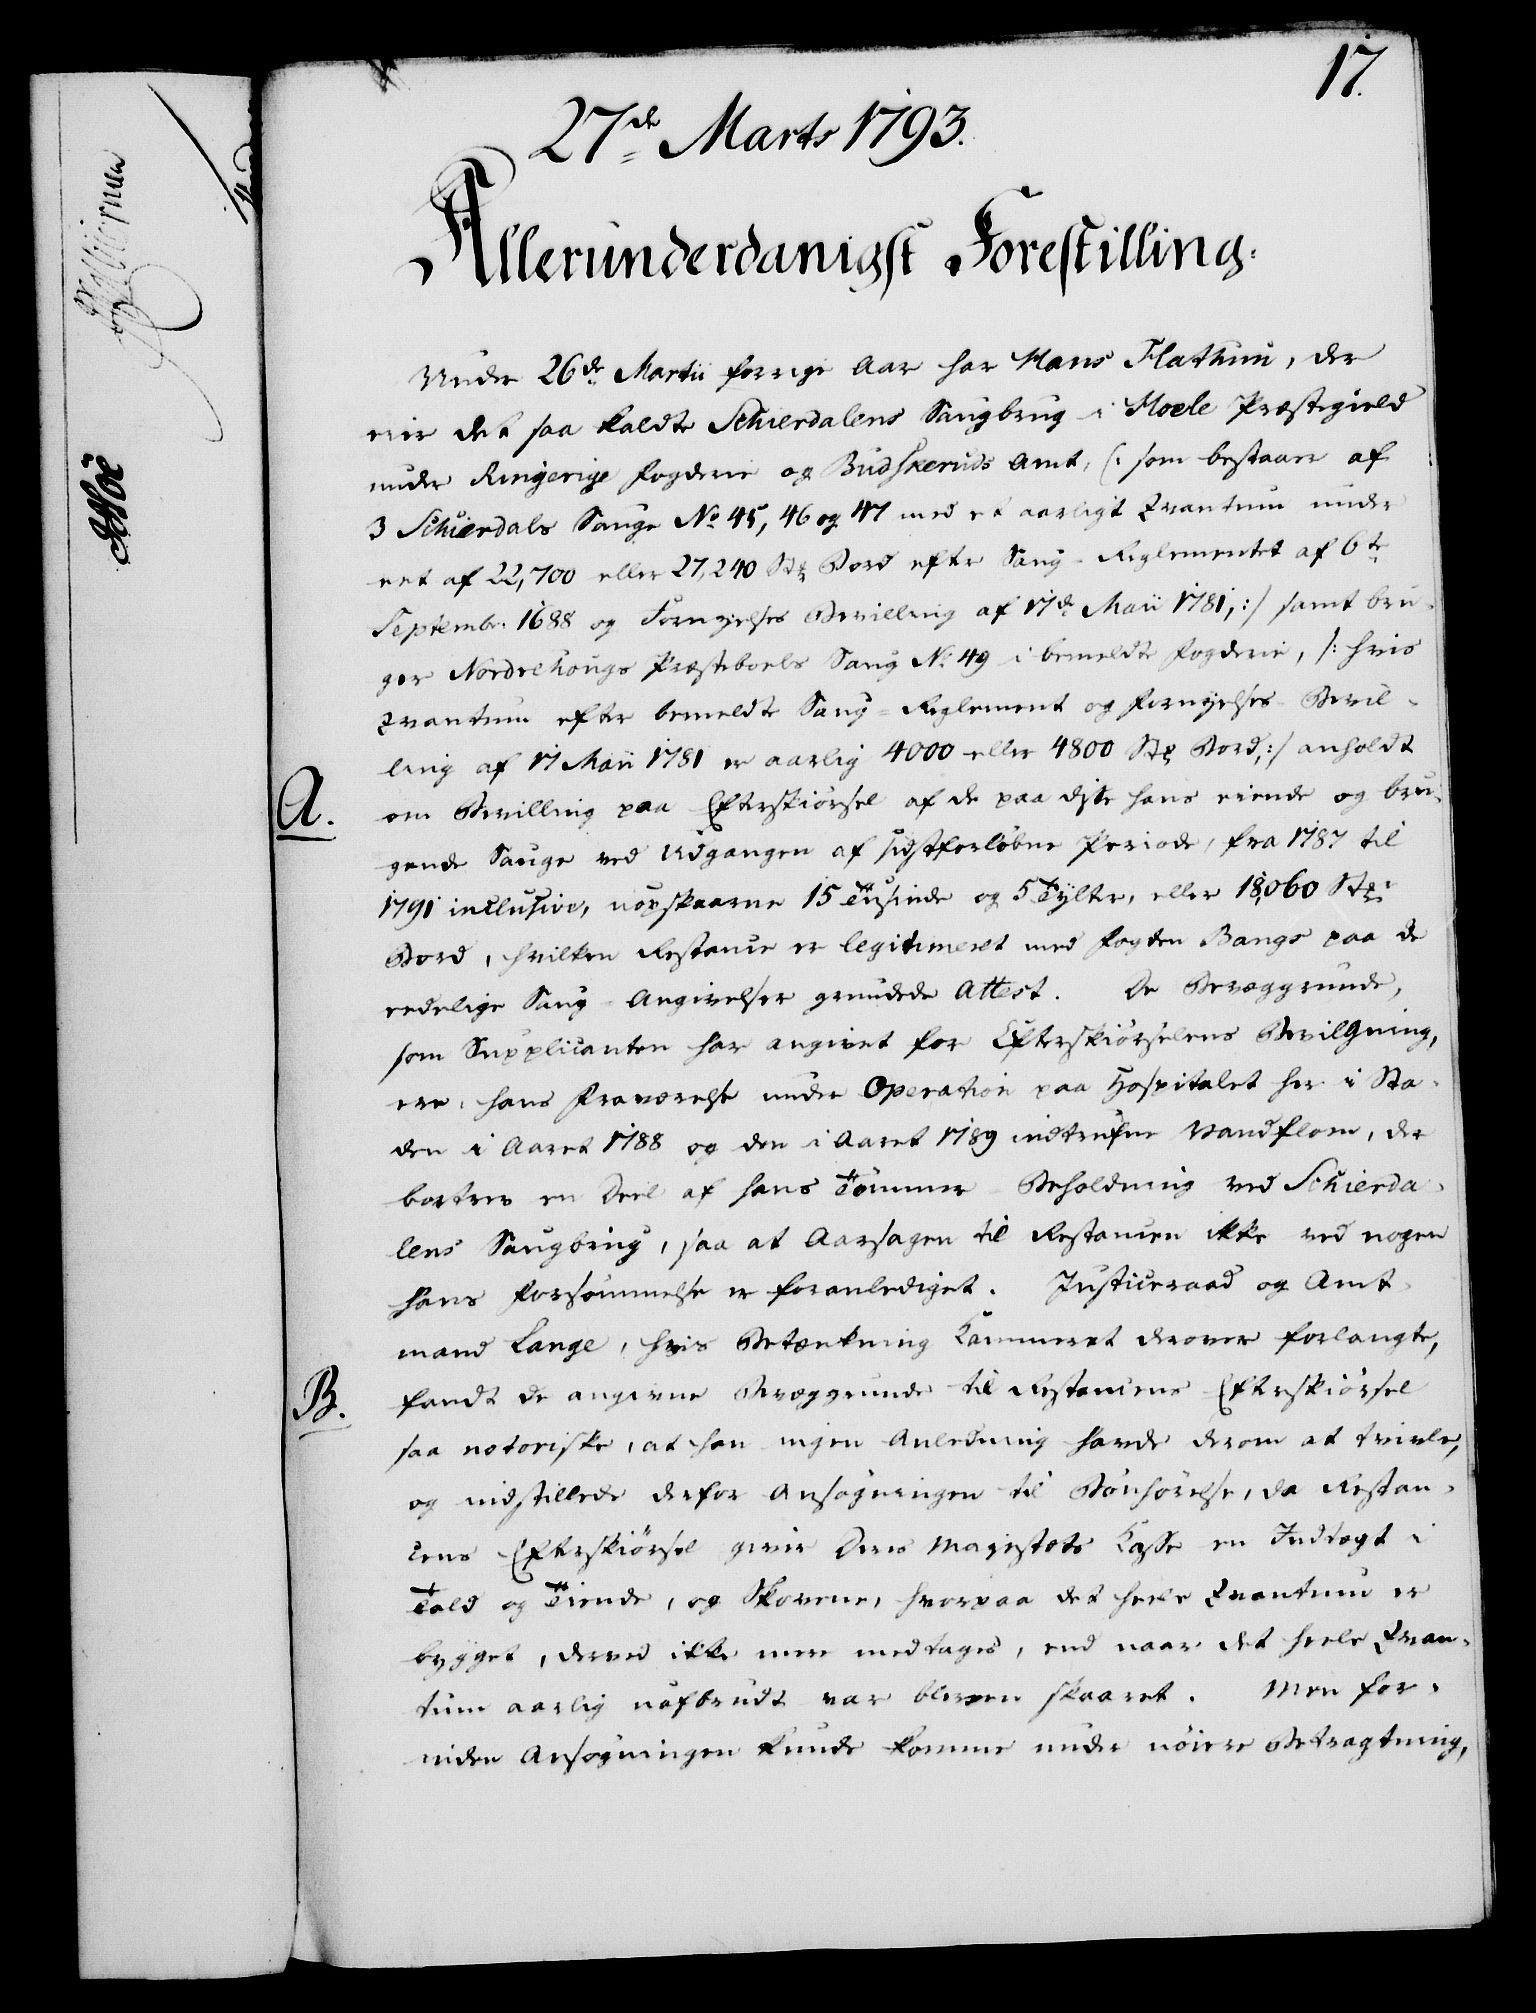 17.
27de Marts 1793.
Allerunderdanigst Forestilling.
Under 26de Martii forrige Aar har Hans Flattum, der
eier det saa kaldte Schierdalens Saugbrug i Hoele Præstegield
under Ringerige Fogderie og Budskeruds Amt, (: som bestaaer af
3 Schierdals Sauge No 45, 46 og 47 med et aarligt Qvantum under
eet af 22,700 eller 27,240 Stz Bord efter Saug-Reglementet af 6te
Septembr. 1688 og Fornyelses Bevilling af 17de Maii 1781, :/ samt bru-
ger Nordrehougs Præsteboels Saug No 49 i bemeldte Fogderie, /: hvis
Qvantum efter bemeldte Saug-Reglement og Fornyelses-Bevil-
ling af 17 Maii 1781 er aarlig 4000 eller 4800 Stz Bord, :/ anholdt
A.
om Bevilling paa Efterskiørsel af de paa disse hans eiende og bru-
gende Sauge ved Udgangen af sidstforløbne Periode, fra 1787 til
1791 inclusive, uopskaarne 15 Tusinde og 5 Tylter, eller 18,060 Stz:
Bord, hvilken Restance er legitimeret med Fogden Bangs paa de
eedelige Saug-Angivelser grundede Attest. De Bevæggrunde,
som Supplicanten har angivet for Efterskiørselens Bevilgning,
ere, hans Fraværelse under Operation paa Hospitalet her i Sta-
den i Aaret 1788 og den i Aaret 1789 indtrufne Vandflom, der
bortrev en Deel af hans Tømmer-Beholdning ved Schierda-
lens Saugbrug, saa at Aarsagen til Restancen ikke ved nogen
hans Forsømmelse er foranlediget. Justiceraad og Amt-
mand Lange, hvis Betænkning Kammeret derover forlangte,
B.
fandt de angivne Bevæggrunde til Restancens Efterskiørsel
saa notoriske, at han ingen Anledning havde derom at tvivle,
og indstillede derfor Ansøgningen til Bønhørelse, da Restan-
cens Efterskiørsel giver Deres Majestæts Casse en Indtægt i
Told og Tiende, og Skovene, hvorpaa det heele Qvantum er
bygget, derved ikke mere medtages, end naar det heele Qvan-
tum aarlig uafbrudt var bleven skaaret. Men for-
inden Ansøgningen kunde komme under nøiere Betragtning,